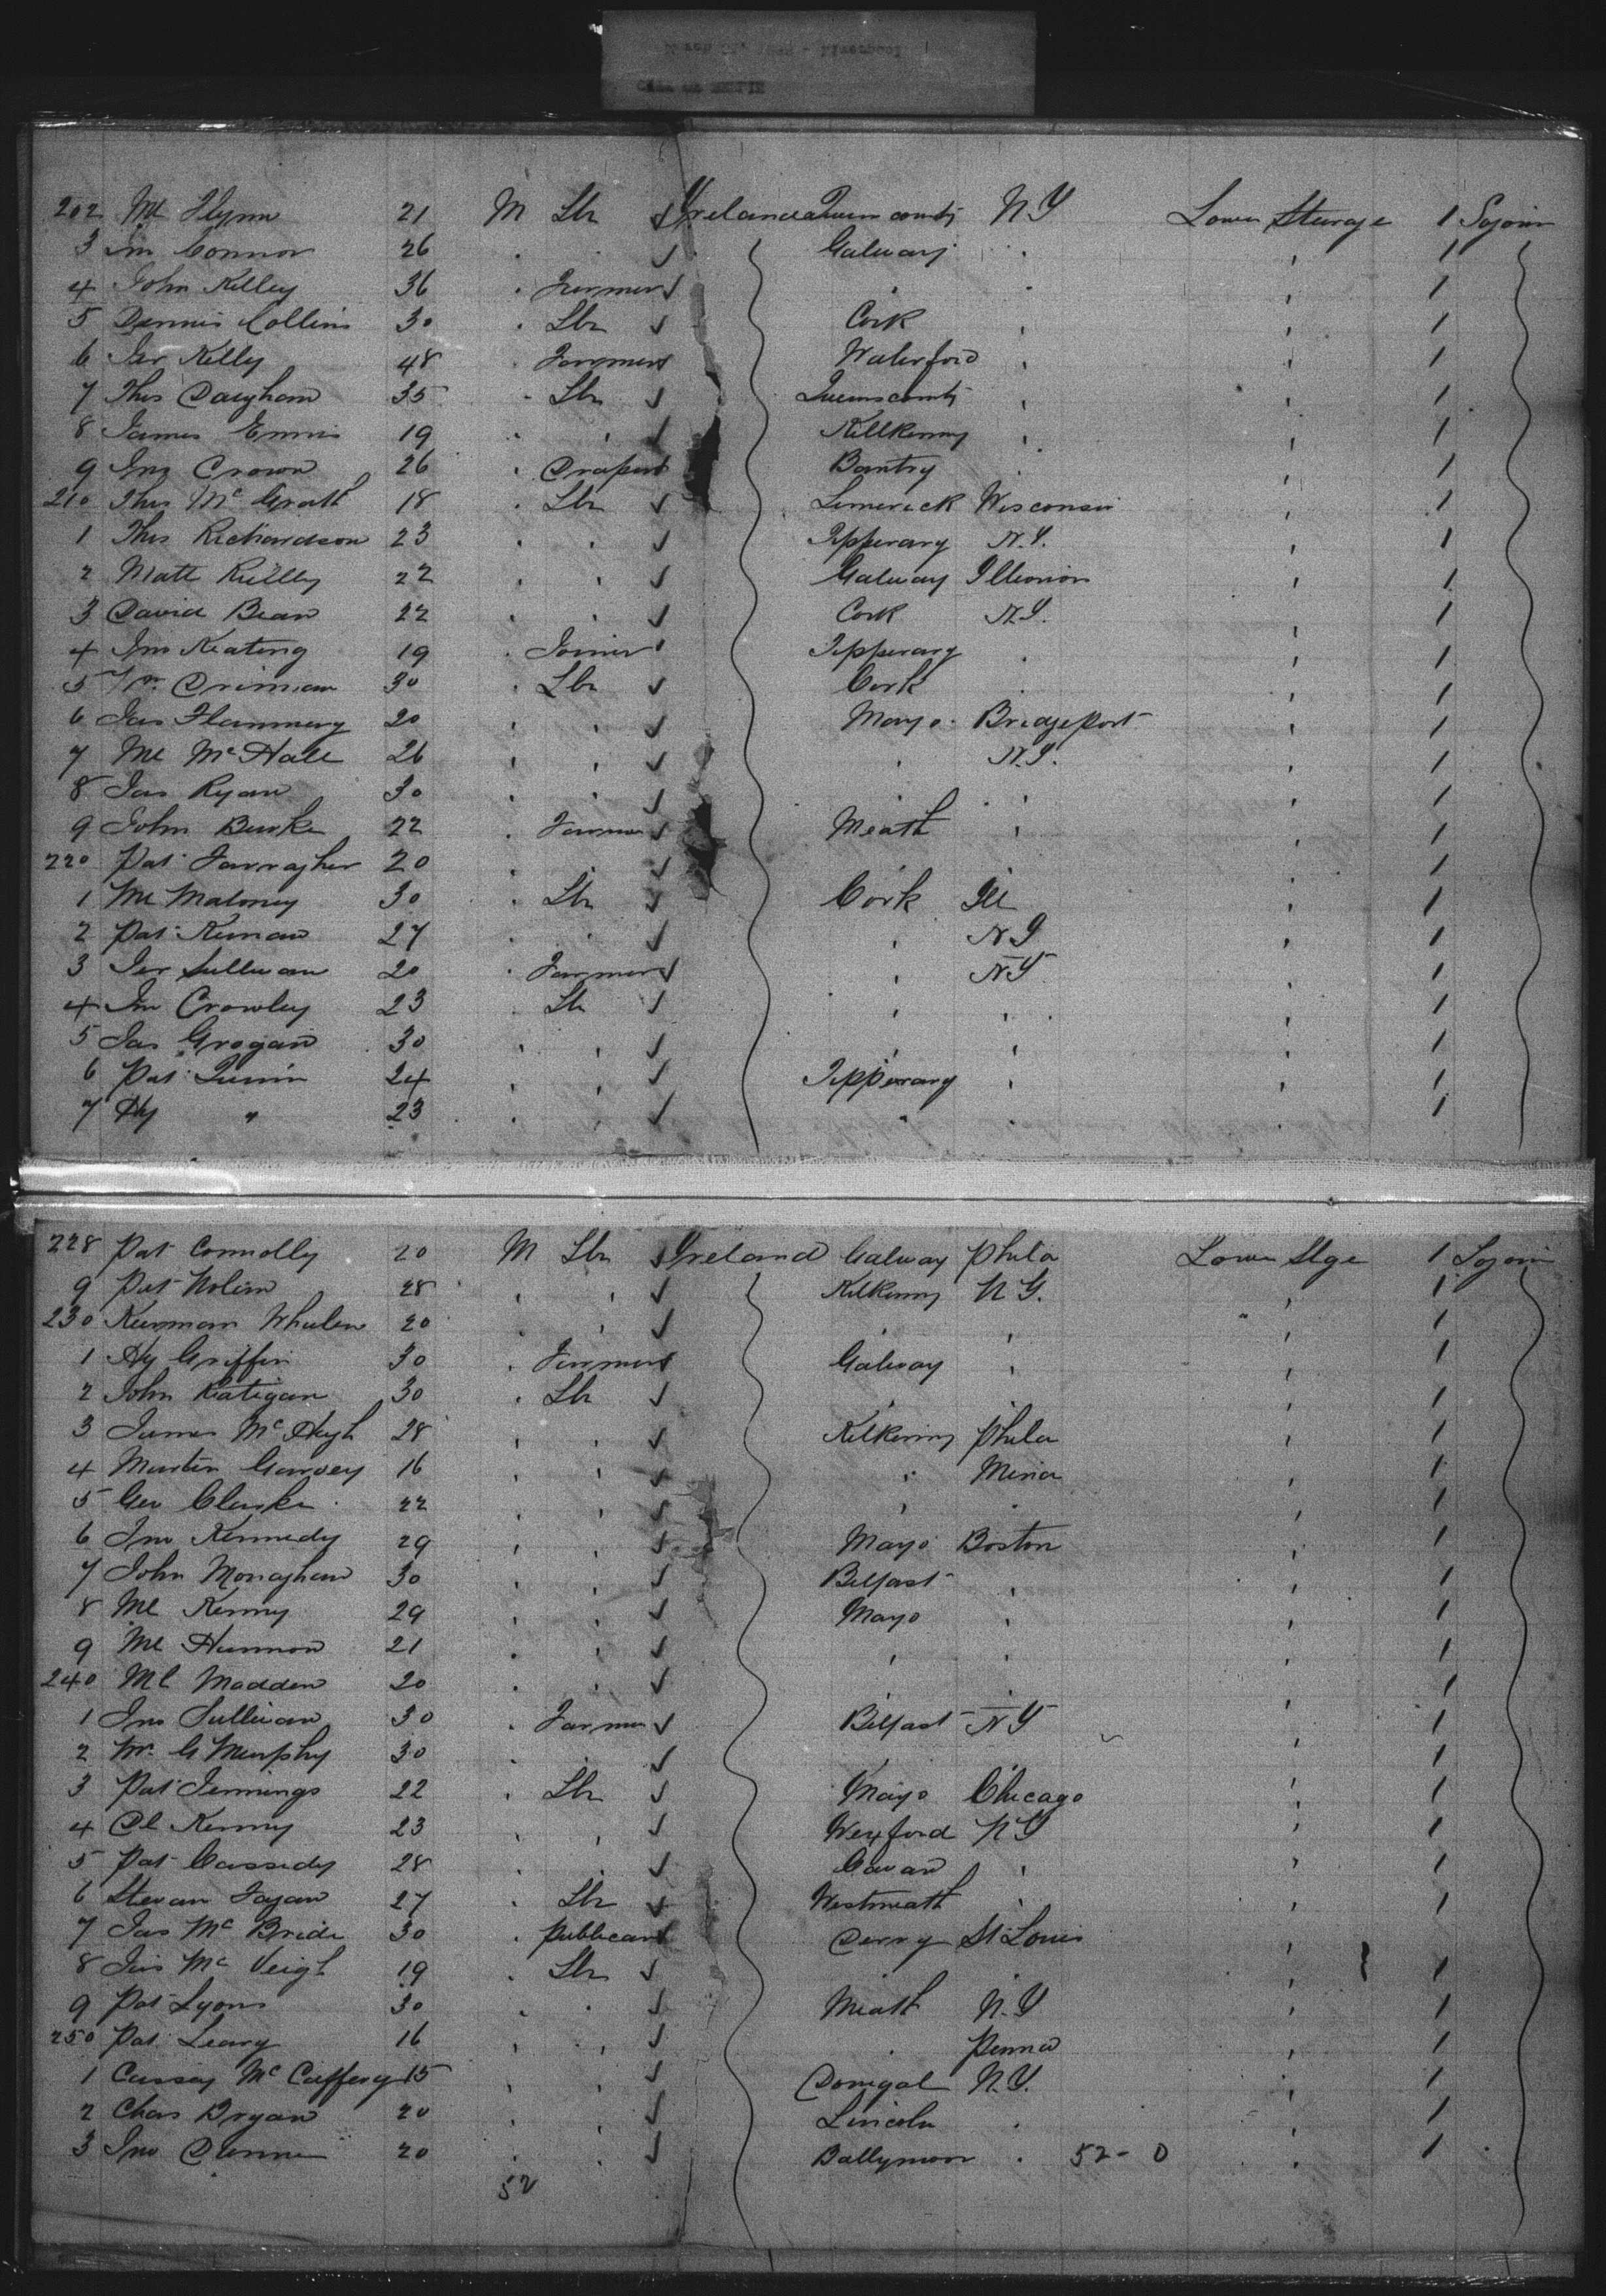 Liverpool
202 Ml Flynn 21 M Lbr Ireland Queens county N Y Lower Sterage 1 Sojourn
3 Jno Connor 26 . . Galway . 1
4 John Kelley 36 . Farmer . . 1
5 Dennis Collins 30 . Lbr Cork 1
6 Jer Kelly 48 . Farmer Waterford 1
7 Thos 35 . Lbr Queens county 1
8 James Ennis 19 . . Killkenny 1
9 Jno Crown 26 . Draper Bantry 1
210 Thos Mc Grath 18 . Lbr Limerick Wisconsin 1
1 Thos Richardson 23 . . Tipperary N.Y. 1
2 Matt Rielly 22 . . Galway 1
3 David Bean 22 . . Cork N.Y. 1
4 Jno Keating 19 . Joiner Tipperary . 1
5 30 . Lbr Cork . 1
6 Jas Flannery 20 . . Mayo Bridgeport 1
7 Ml Mc Hale 26 . . . N.Y. 1
8 Jas Ryan 30 . . . . 1
9 John Burke 22 . Farmer Meath 1
220 Pat Farragher 20 . . . 1
1 Ml Maloney 30 . Lbr Cork Ill 1
2 Pat 27 . . . N Y 1
3 Jer Sullivan 20 . Farmer . N Y 1
4 Jno Crowley 23 . Lbr . . 1
5 Jas Grogan 30 . . . . 1
6 Pat Quinn 24 . . Tipperary . 1
7 Hy " 23 . . " . 1
228 Pat Connolly 20 M Lbr Ireland Galway Phila Lower Stge 1 Sojourn
9 Pat Nolin 28 . . Kilkenny N Y. 1
230 Whelan 20 . . . . 1
1 Hy Griffin 30 . Farmer Galway . 1
2 John Ratigan 30 . Lbr . . 1
3 James Mc Hugh 28 . . Kilkenny Phila 1
4 Martin Garvey 16 . . . 1
5 Geo Clarke 22 . . . . 1
6 Jno Kennedy 29 . . Mayo Boston 1
7 John Monaghan 30 . . Belfast . 1
8 Ml Kenny 29 . . Mayo . 1
9 Ml Hannon 21 . . . . 1
240 Ml Madden 20 . . . . 1
1 Jno Sullivan 30 . Farmer Belfast N Y 1
2 Wm G Murphy 30 . . . . 1
3 Pat Jennings 22 . Lbr Mayo Chicago 1
4 Kenny 23 . . Wexford N Y 1
5 Pat Cassidy 28 . . Cavan . 1
6 Stevan Fagan 27 . Lbr Westmeath . 1
7 Jas Mc Bride 30 . Publican Derry St Louis
8 Jas Mc Veigh 19 . Lbr . . 1
9 Pat Lyons 30 . . Meath N.Y 1
250 Pat Leary 16 . . . Penna 1
1 Cassey Mc Caffery 15 . . Donigal N.Y. 1
2 Chas Bryan 20 . . Lincoln . 1
3 Jno 20 . . Ballymoor . 52 - 0 1
52